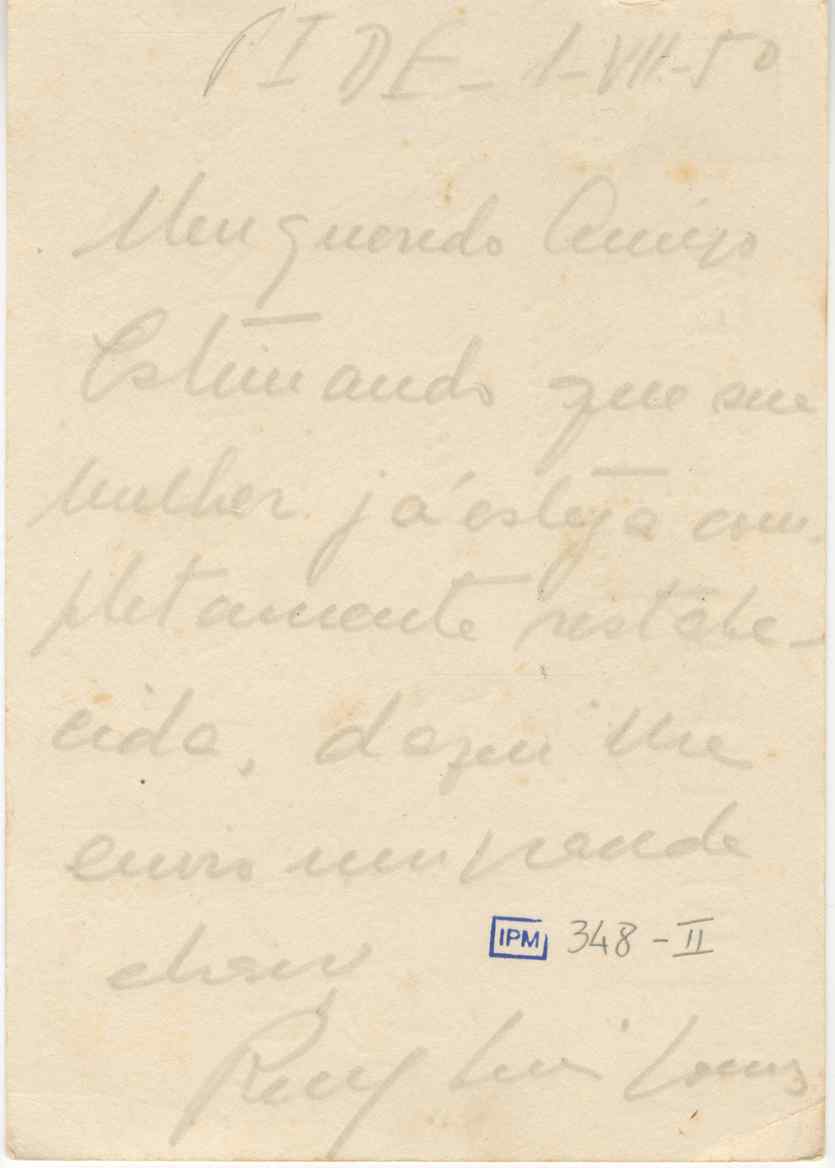 PIDE - 1-VII-50
Meu querido Amigo
Estimando que sua
mulher já esteja com-
pletamente restabe-
cida, daqui lhe
envio um grande
abraço
IPM 348-II
Ruy Luís Gomes